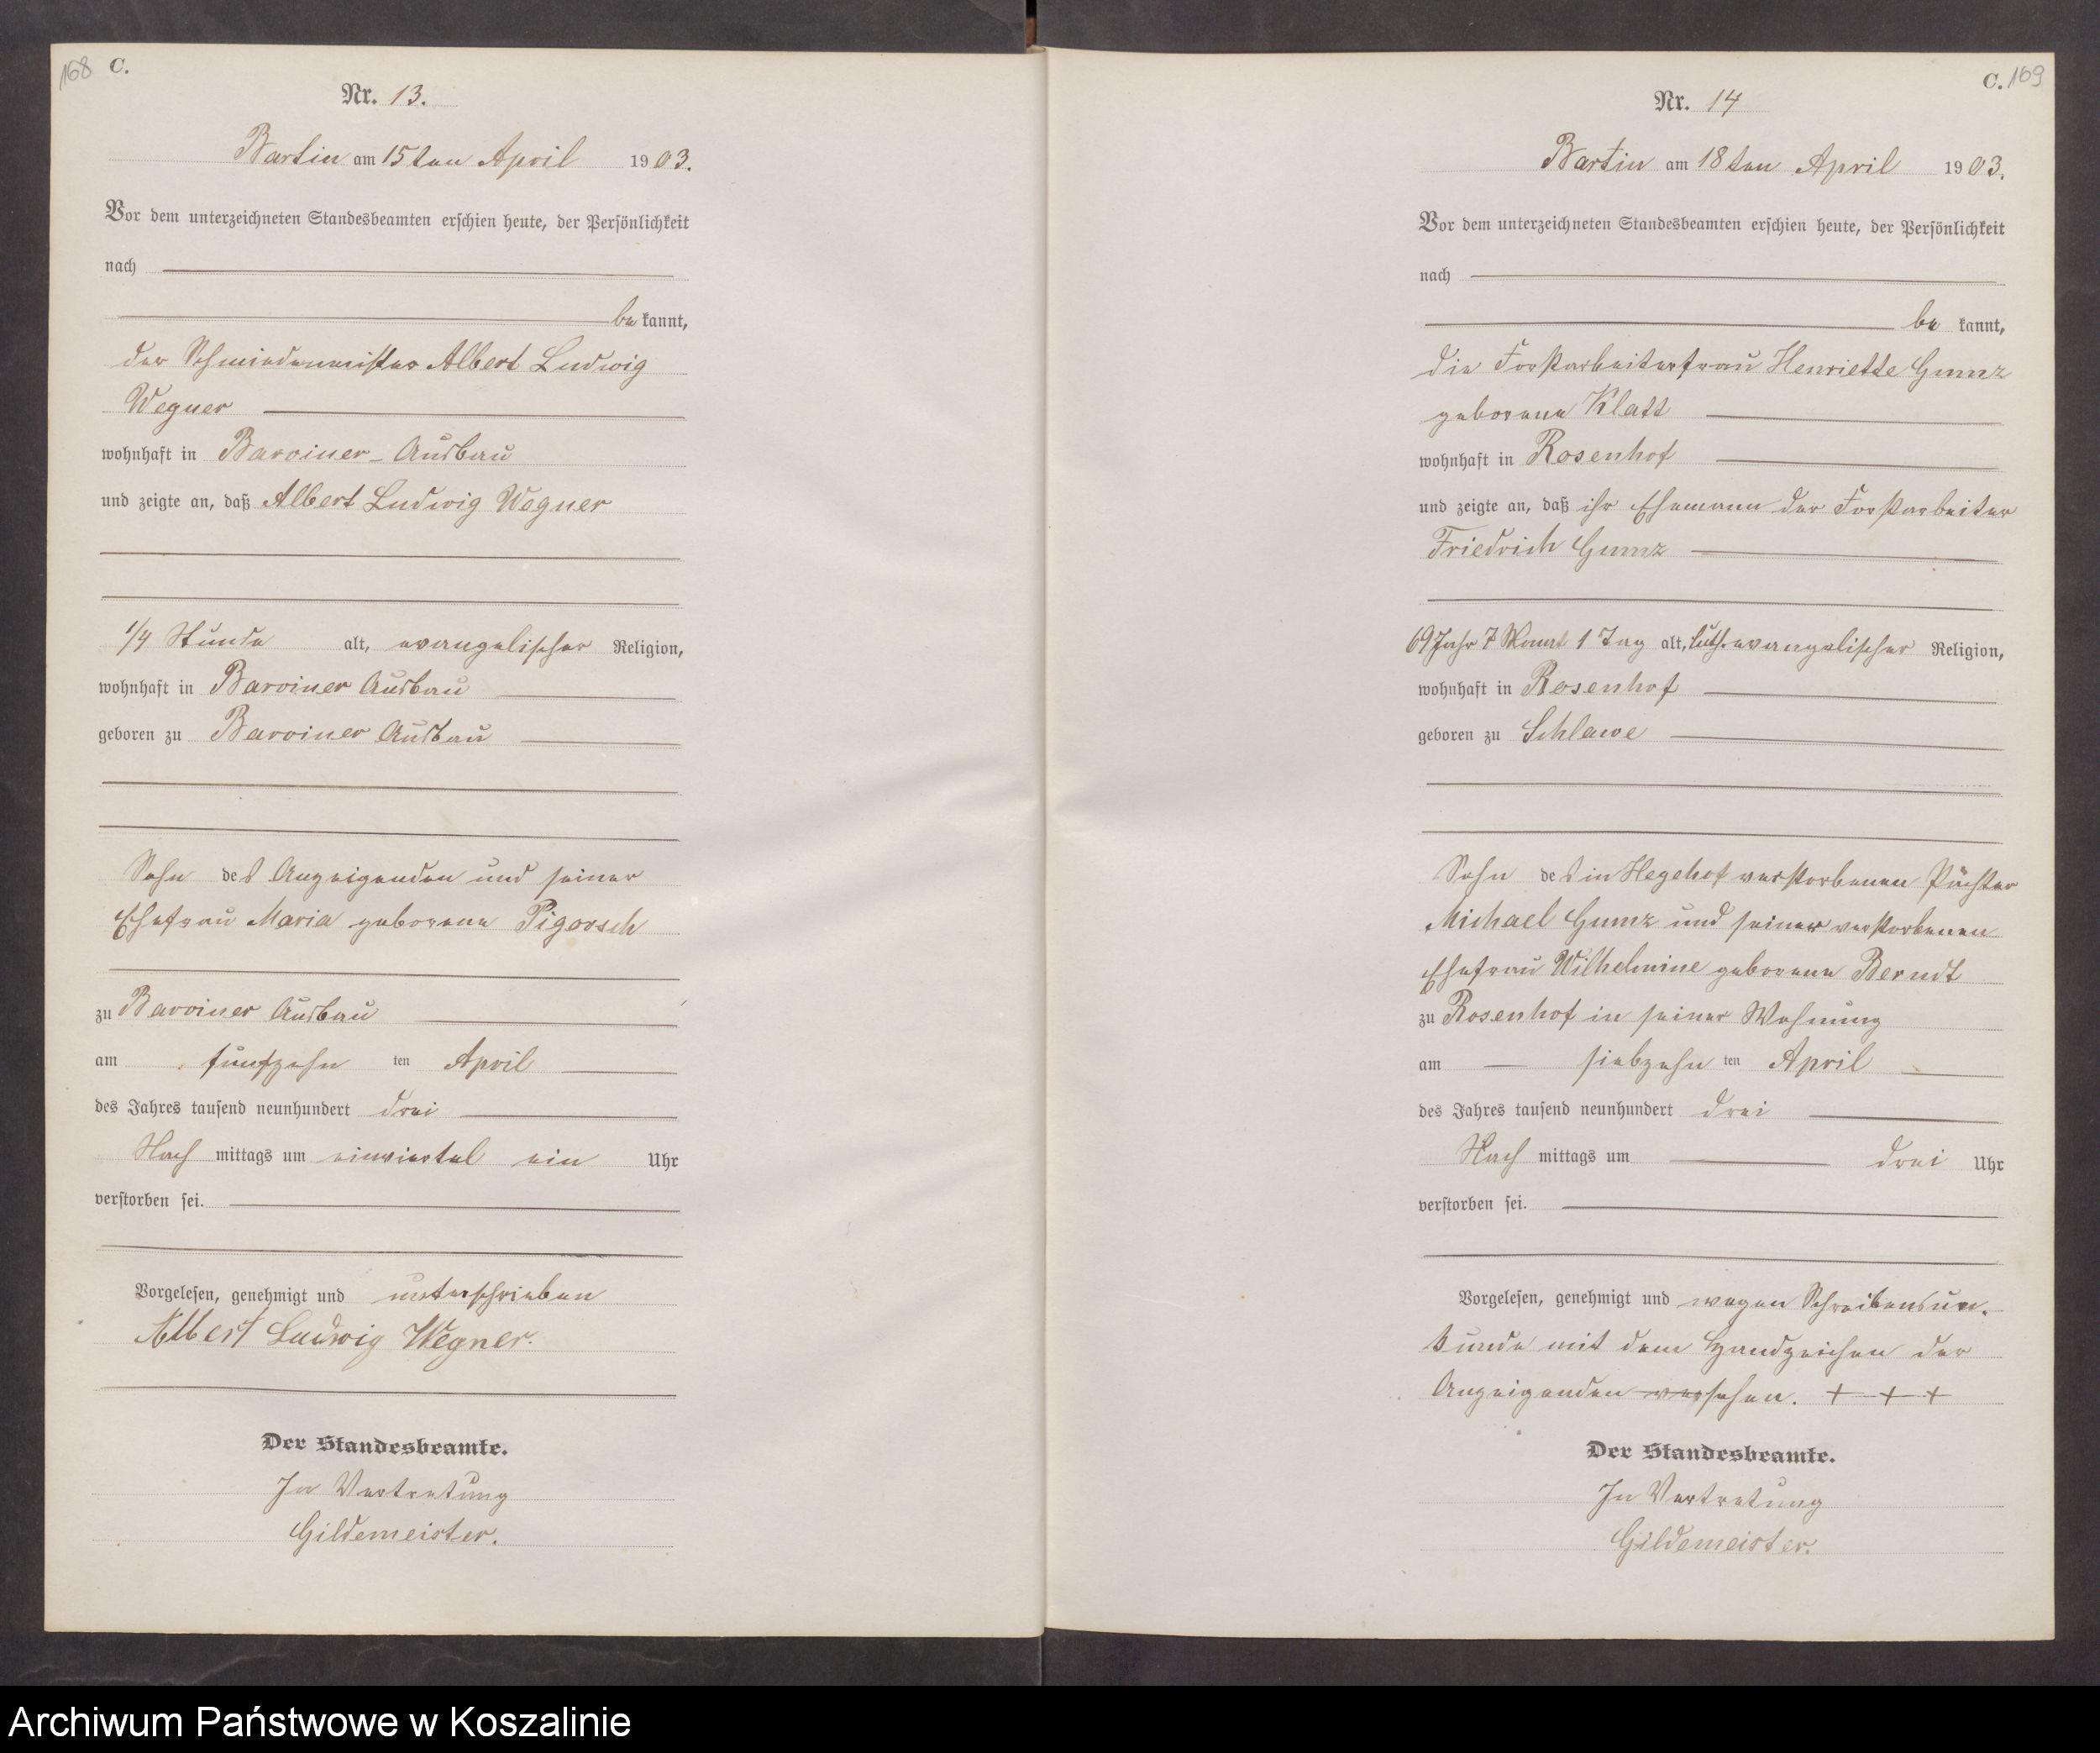 168 C.
Nr. 13.
Bartin am 15ten April 1903.
Vor dem unterzeichneten Standesbeamten erschien heute, der Persönlichkeit
nach
be kannt,
der Schmiedemeister Albert Ludwig
Wegner
wohnhaft in Barviner-Ausbau
und zeigte an, daß Albert Ludwig Wegner
1/4 Stunde alt, evangelischer Religion,
wohnhaft in Barviner Ausbau
geboren zu Barviner Ausbau
Sohn des Anzeigenden und seiner
Ehefrau Maria geborene Pigorsch
zu Barviner Ausbau
am fünfzehn ten April
des Jahres tausend neunhundert drei
Nach mittags um einviertel ein Uhr
verstorben sei.
Vorgelesen, genehmigt und unterschrieben
Albert Ludwig Wegner.
Der Standesbeamte.
In Vertretung
Gildemeister.
C. 169
Nr. 14
Bartin am 18ten April 1903.
Vor dem unterzeichneten Standesbeamten erschien heute, der Persönlichkeit
nach
be kannt,
die Forstarbeiterfrau Henriette Gumz
geborene Klatt
wohnhaft in Rosenhof
und zeigte an, daß ihr Ehemann der Forstarbeiter
Friedrich Gumz
69 Jahr 7 Monat 1 Tag alt, luth. evangelischer Religion,
wohnhaft in Rosenhof
geboren zu Schlawe
Sohn des in Hegehof verstorbenen Pächter
Michael Gumz und seiner verstorbenen
Ehefrau Wilhelmine geborene Berndt
zu Rosenhof in seiner Wohnung
am siebzehn ten April
des Jahres tausend neunhundert drei
Nach mittags um drei Uhr
verstorben sei.
Vorgelesen, genehmigt und wegen Schreibensun-
kunde mit dem Handzeichen der
Anzeigenden versehen. + + +
Der Standesbeamte.
In Vertretung
Gildemeister.
Archiwum Państwowe w Koszalinie